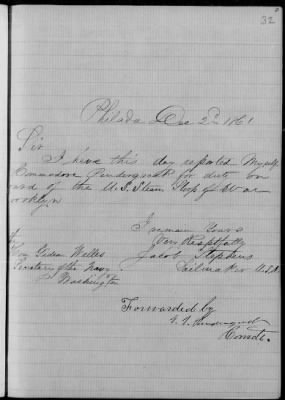 32
Philada Dec 2nd 1861
Sir
I have this day reported Myself
Commodore Pendergrast for duty on
ard of the U.S. Steam Sloop of War
rooklyn
I remain Yours
Very Respctfully
Jacob Stephens
Sailmaker U.S.N.
Hon Gideon Welles
Secretary of the Navy
Washington
Forwarded by
Pendergrast
Comdt.